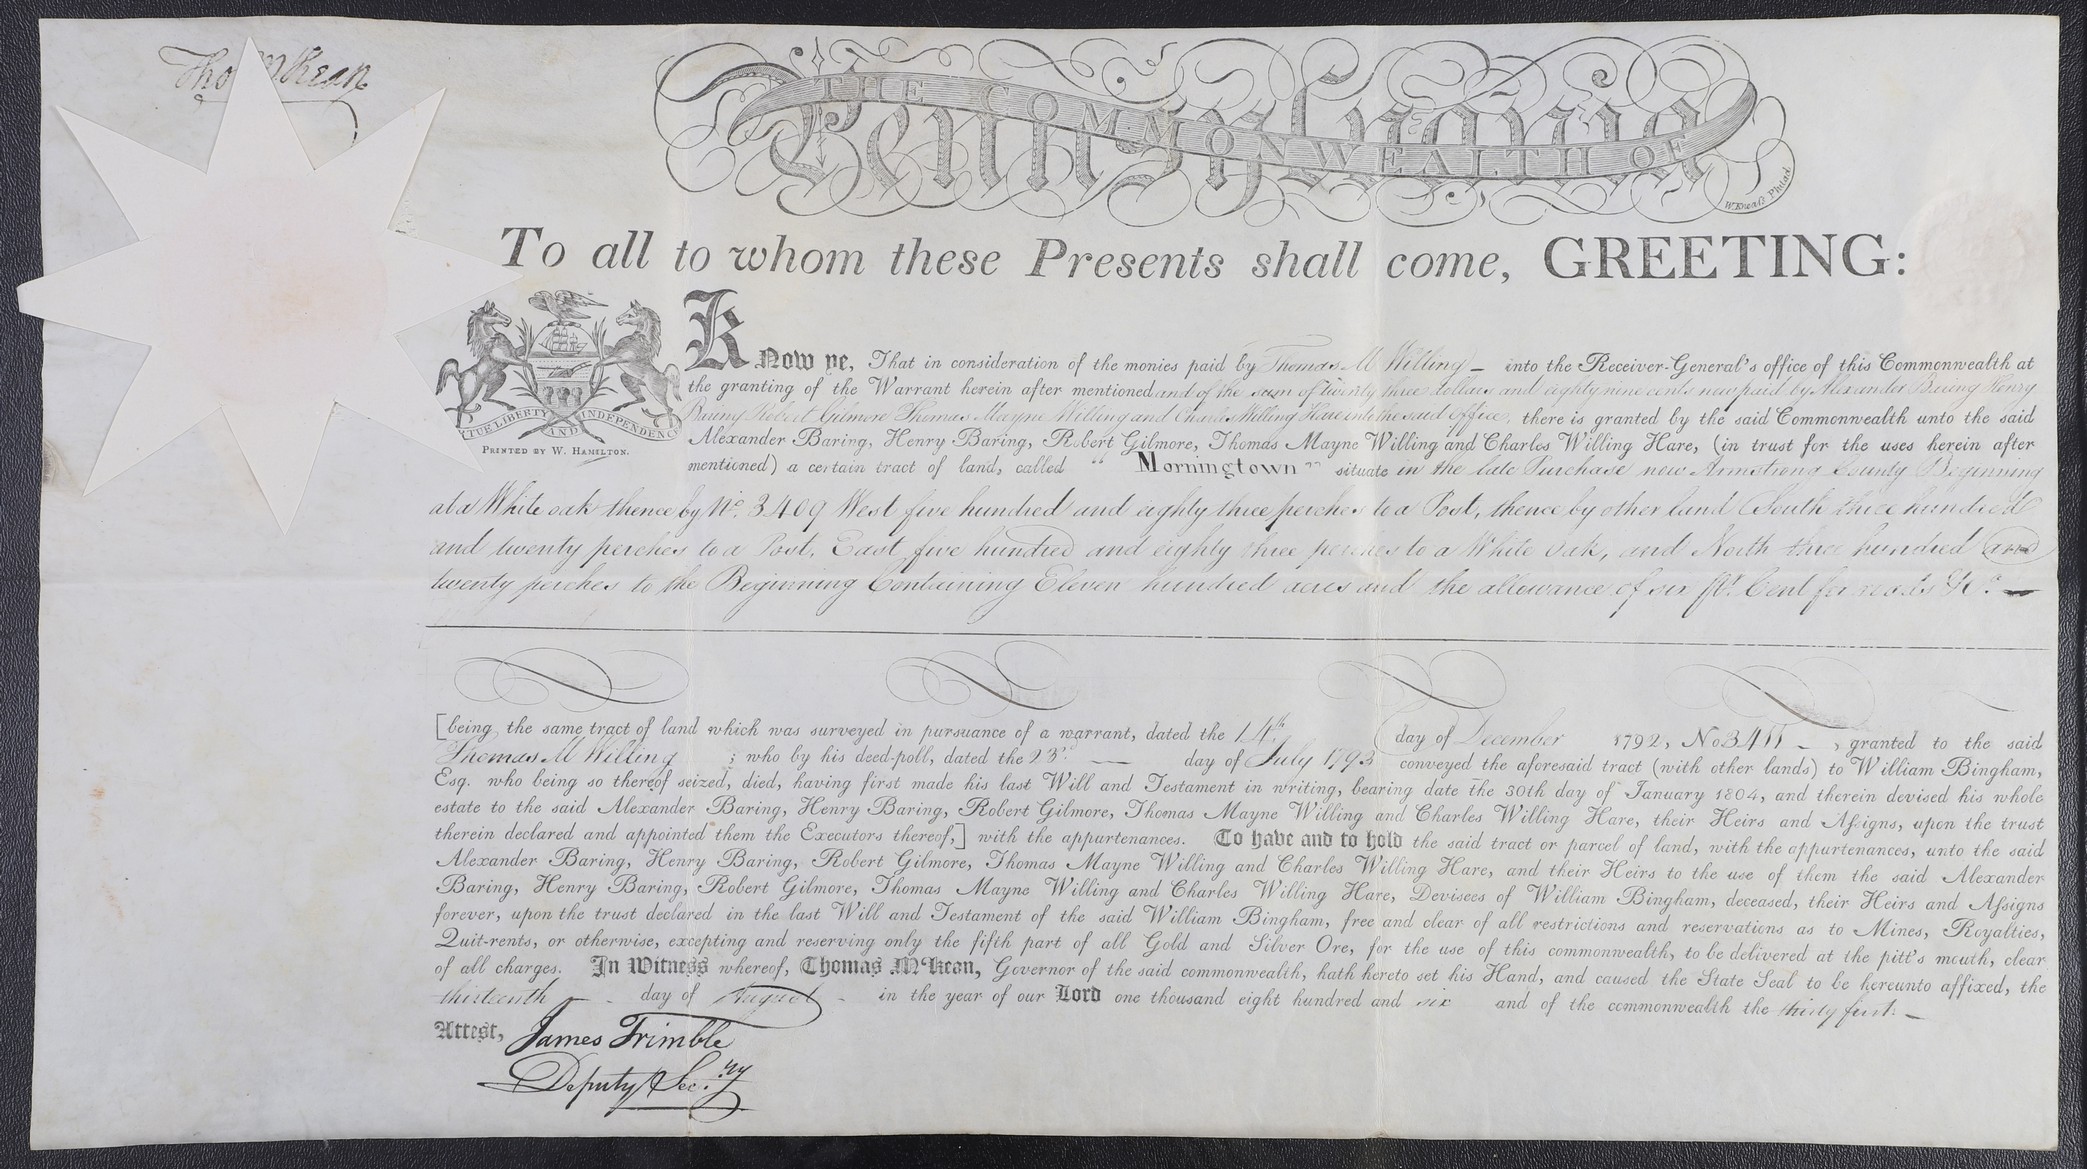 Thos M:Kean
THE COMMONWEALTH OF
Pennsylvania
W. Kneaß Philad.
To all to whom these Presents shall come, GREETING:
VIRTUE LIBERTY AND INDEPENDENCE
PRINTED BY W. HAMILTON.
Know ye, That in consideration of the monies paid by Thomas M Willing – into the Receiver-General's office of this Commonwealth at
the granting of the Warrant herein after mentioned and of the sum of twenty three dollars and eighty nine cents now paid by Alexander Baring Henry
Baring Robert Gilmore Thomas Mayne Willing and Charles Willing Hare into the said Office, there is granted by the said Commonwealth unto the said
Alexander Baring, Henry Baring, Robert Gilmore, Thomas Mayne Willing and Charles Willing Hare, (in trust for the uses herein after
mentioned) a certain tract of land, called " Morningtown " situate in the late Purchase now Armstrong County Beginning
at a White oak thence by No. 3409 West five hundred and eighty three perches to a Post, thence by other land South three hundred
and twenty perches to a Post, East five hundred and eighty three perches to a White Oak, and North three hundred and
twenty perches to the Beginning Containing Eleven hundred acres and the allowance of six pr. Cent for roads &c. —
[being the same tract of land which was surveyed in pursuance of a warrant, dated the 14th day of December 1792, No 3411 – , granted to the said
Thomas M Willing ; who by his deed-poll, dated the 23d. — day of July 1793 conveyed the aforesaid tract (with other lands) to William Bingham,
Esq. who being so thereof seized, died, having first made his last Will and Testament in writing, bearing date the 30th day of January 1804, and therein devised his whole
estate to the said Alexander Baring, Henry Baring, Robert Gilmore, Thomas Mayne Willing and Charles Willing Hare, their Heirs and Aſsigns, upon the trust
therein declared and appointed them the Executors thereof,] with the appurtenances. To have and to hold the said tract or parcel of land, with the appurtenances, unto the said
Alexander Baring, Henry Baring, Robert Gilmore, Thomas Mayne Willing and Charles Willing Hare, and their Heirs to the use of them the said Alexander
Baring, Henry Baring, Robert Gilmore, Thomas Mayne Willing and Charles Willing Hare, Devisees of William Bingham, deceased, their Heirs and Aſsigns
forever, upon the trust declared in the last Will and Testament of the said William Bingham, free and clear of all restrictions and reservations as to Mines, Royalties,
Quit-rents, or otherwise, excepting and reserving only the fifth part of all Gold and Silver Ore, for the use of this commonwealth, to be delivered at the pitt's mouth, clear
of all charges. In Witness whereof, Thomas M'Kean, Governor of the said commonwealth, hath hereto set his Hand, and caused the State Seal to be hereunto affixed, the
thirteenth – day of August – in the year of our Lord one thousand eight hundred and six and of the commonwealth the thirty first. –
Attest, James Trimble
Deputy Sec.ry